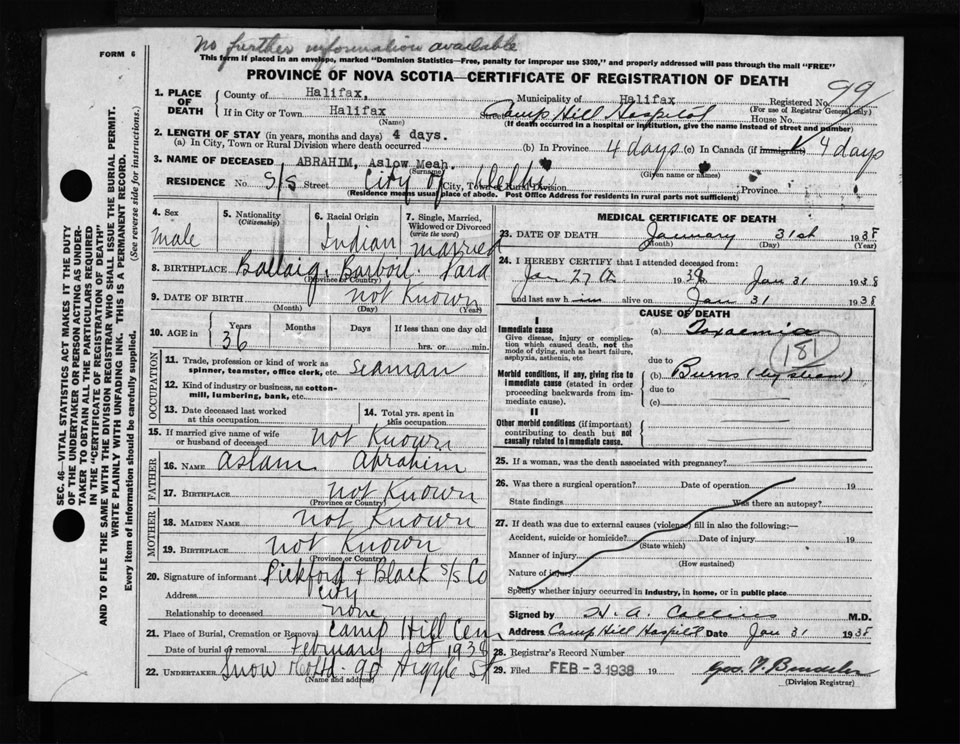 No further information available
FORM 6
This form if placed in an envelope, marked "Dominion Statistics—Free, penalty for improper use $300," and properly addressed will pass through the mail "FREE"
PROVINCE OF NOVA SCOTIA—CERTIFICATE OF REGISTRATION OF DEATH
SEC. 46—VITAL STATISTICS ACT MAKES IT THE DUTY
OF THE UNDERTAKER OR PERSON ACTING AS UNDER-
TAKER TO OBTAIN ALL THE PARTICULARS REQUIRED
IN THE "CERTIFICATE OF REGISTRATION OF DEATH"
AND TO FILE THE SAME WITH THE DIVISION REGISTRAR WHO SHALL ISSUE THE BURIAL PERMIT.
WRITE PLAINLY WITH UNFADING INK. THIS IS A PERMANENT RECORD.
Every item of information should be carefully supplied.
(See reverse side for instructions.)
1. PLACE OF DEATH
County of Halifax, Municipality of Halifax Registered No. 99
(For use of Registrar General only)
If in City or Town Halifax Street Camp Hill Hospital House No.
(Name) (If death occurred in a hospital or institution, give the name instead of street and number)
2. LENGTH OF STAY (in years, months and days) 4 days.
(a) In City, Town or Rural Division where death occurred (b) In Province 4 days (c) In Canada (if immigrant) 4 days
3. NAME OF DECEASED ABRAHIM, Aslow Meah.
(Surname) (Given name or names)
RESIDENCE No. S/S Street City of Delhi City, Town or Rural Division Province
(Residence means usual place of abode. Post Office Address for residents in rural parts not sufficient)
4. Sex
male
5. Nationality
(Citizenship)
6. Racial Origin
Indian
7. Single, Married, Widowed or Divorced
(write the word)
married
8. BIRTHPLACE
(Province or Country)
9. DATE OF BIRTH not Known
(Month) (Day) (Year)
10. AGE in Years Months Days If less than one day old
36 hrs. or min.
OCCUPATION
11. Trade, profession or kind of work as spinner, teamster, office clerk, etc. Seaman
12. Kind of industry or business, as cotton-mill, lumbering, bank, etc.
13. Date deceased last worked at this occupation
14. Total yrs. spent in this occupation
15. If married give name of wife or husband of deceased not Known
FATHER
16. NAME Aslam Abrahim
17. BIRTHPLACE not Known
(Province or Country)
MOTHER
18. MAIDEN NAME not Known
19. BIRTHPLACE not Known
(Province or Country)
20. Signature of informant Pickford & Black S/S Co
Address City
Relationship to deceased none
21. Place of Burial, Cremation or Removal Camp Hill Cem
Date of burial or removal February 1st 1938
22. UNDERTAKER Snow 90 Argyle St
(Name and address)
MEDICAL CERTIFICATE OF DEATH
23. DATE OF DEATH January 31st 1938
(Month) (Day) (Year)
24. I HEREBY CERTIFY that I attended deceased from:
Jan 27th 1938 Jan 31 1938
and last saw him alive on Jan 31 1938
CAUSE OF DEATH
I
Immediate cause (a) Toxaemia
Give disease, injury or complication which caused death, not the mode of dying, such as heart failure, asphyxia, asthenia, etc
181
due to
Morbid conditions, if any, giving rise to immediate cause (stated in order proceeding backwards from immediate cause).
(b) Burns (by steam)
due to
(c)
II
Other morbid conditions (if important) contributing to death but not causally related to immediate cause.
25. If a woman, was the death associated with pregnancy?
26. Was there a surgical operation? Date of operation 19
State findings Was there an autopsy?
27. If death was due to external causes (violence) fill in also the following:—
Accident, suicide or homicide? Date of injury 19
(State which)
Manner of injury
(How sustained)
Nature of injury
Specify whether injury occurred in industry, in home, or in public place
Signed by H. A. Collins M.D.
Address Camp Hill Hospital Date Jan 31 1938
28. Registrar's Record Number
29. Filed FEB - 3 1938 19
(Division Registrar)